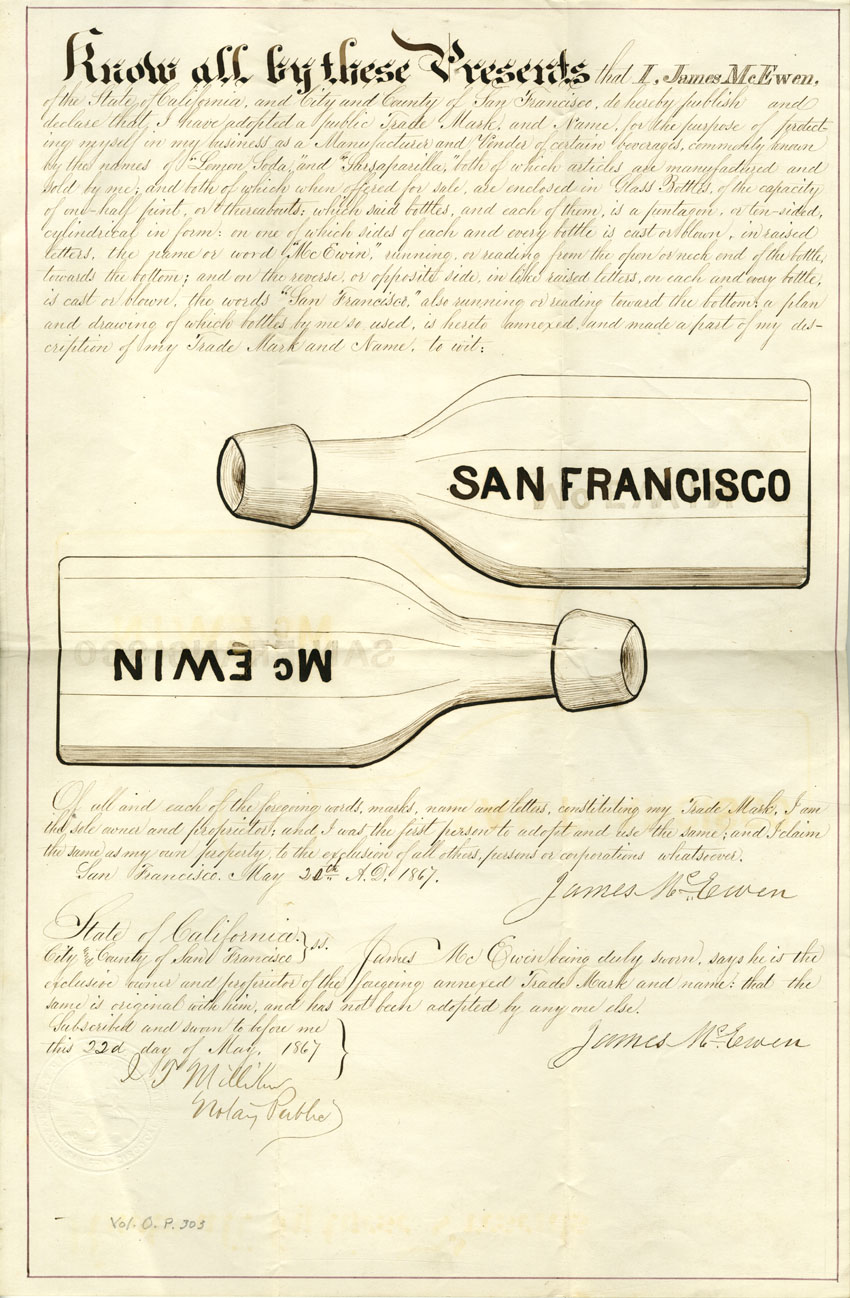 Know all by these Presents that I, James McEwen,
of the State of California, and City and County of San Francisco, do hereby publish and
declare that I have adopted a public Trade Mark, and Name, for the purpose of protect-
ing myself in my business as a Manufacturer and Vender of certain beverages, commonly known
by the names of "Lemon Soda," and "Sarsaparilla," both of which articles are manufactured and
sold by me; and both of which when offered for sale, are enclosed in Glass Bottles, of the capacity
of one-half pint, or thereabouts: which said bottles, and each of them, is a pentagon, or ten-sided,
cylindrical in form: on one of which sides of each and every bottle is cast or blown, in raised
letters, the name or word "McEwin," running, or reading from the open or neck end of the bottle,
towards the bottom; and on the reverse, or opposite side, in like raised letters, on each and every bottle,
is cast or blown, the words "San Francisco," also running or reading toward the bottom: a plan
and drawing of which bottles by me so used, is hereto annexed, and made a part of my des-
cription of my Trade Mark and Name, to wit:
SAN FRANCISCO
Mc EWIN
Of all and each of the foregoing words, marks, name and letters, constituting my Trade Mark, I am
the sole owner and proprietor; and I was the first person to adopt and use the same; and I claim
the same as my own property, to the exclusion of all others, persons or corporations whatsoever.
San Francisco, May A.D. 1867.
James McEwen
State of California }
City and County of San Francisco } ss. James McEwin being duly sworn, says he is the
exclusive owner and proprietor of the foregoing annexed Trade Mark and name: that the
same is original with him, and has not been adopted by any one else.
Subscribed and sworn to before me
this 22d day of May, 1867 }
James McEwen
Notary Public
Vol. O. P. 303